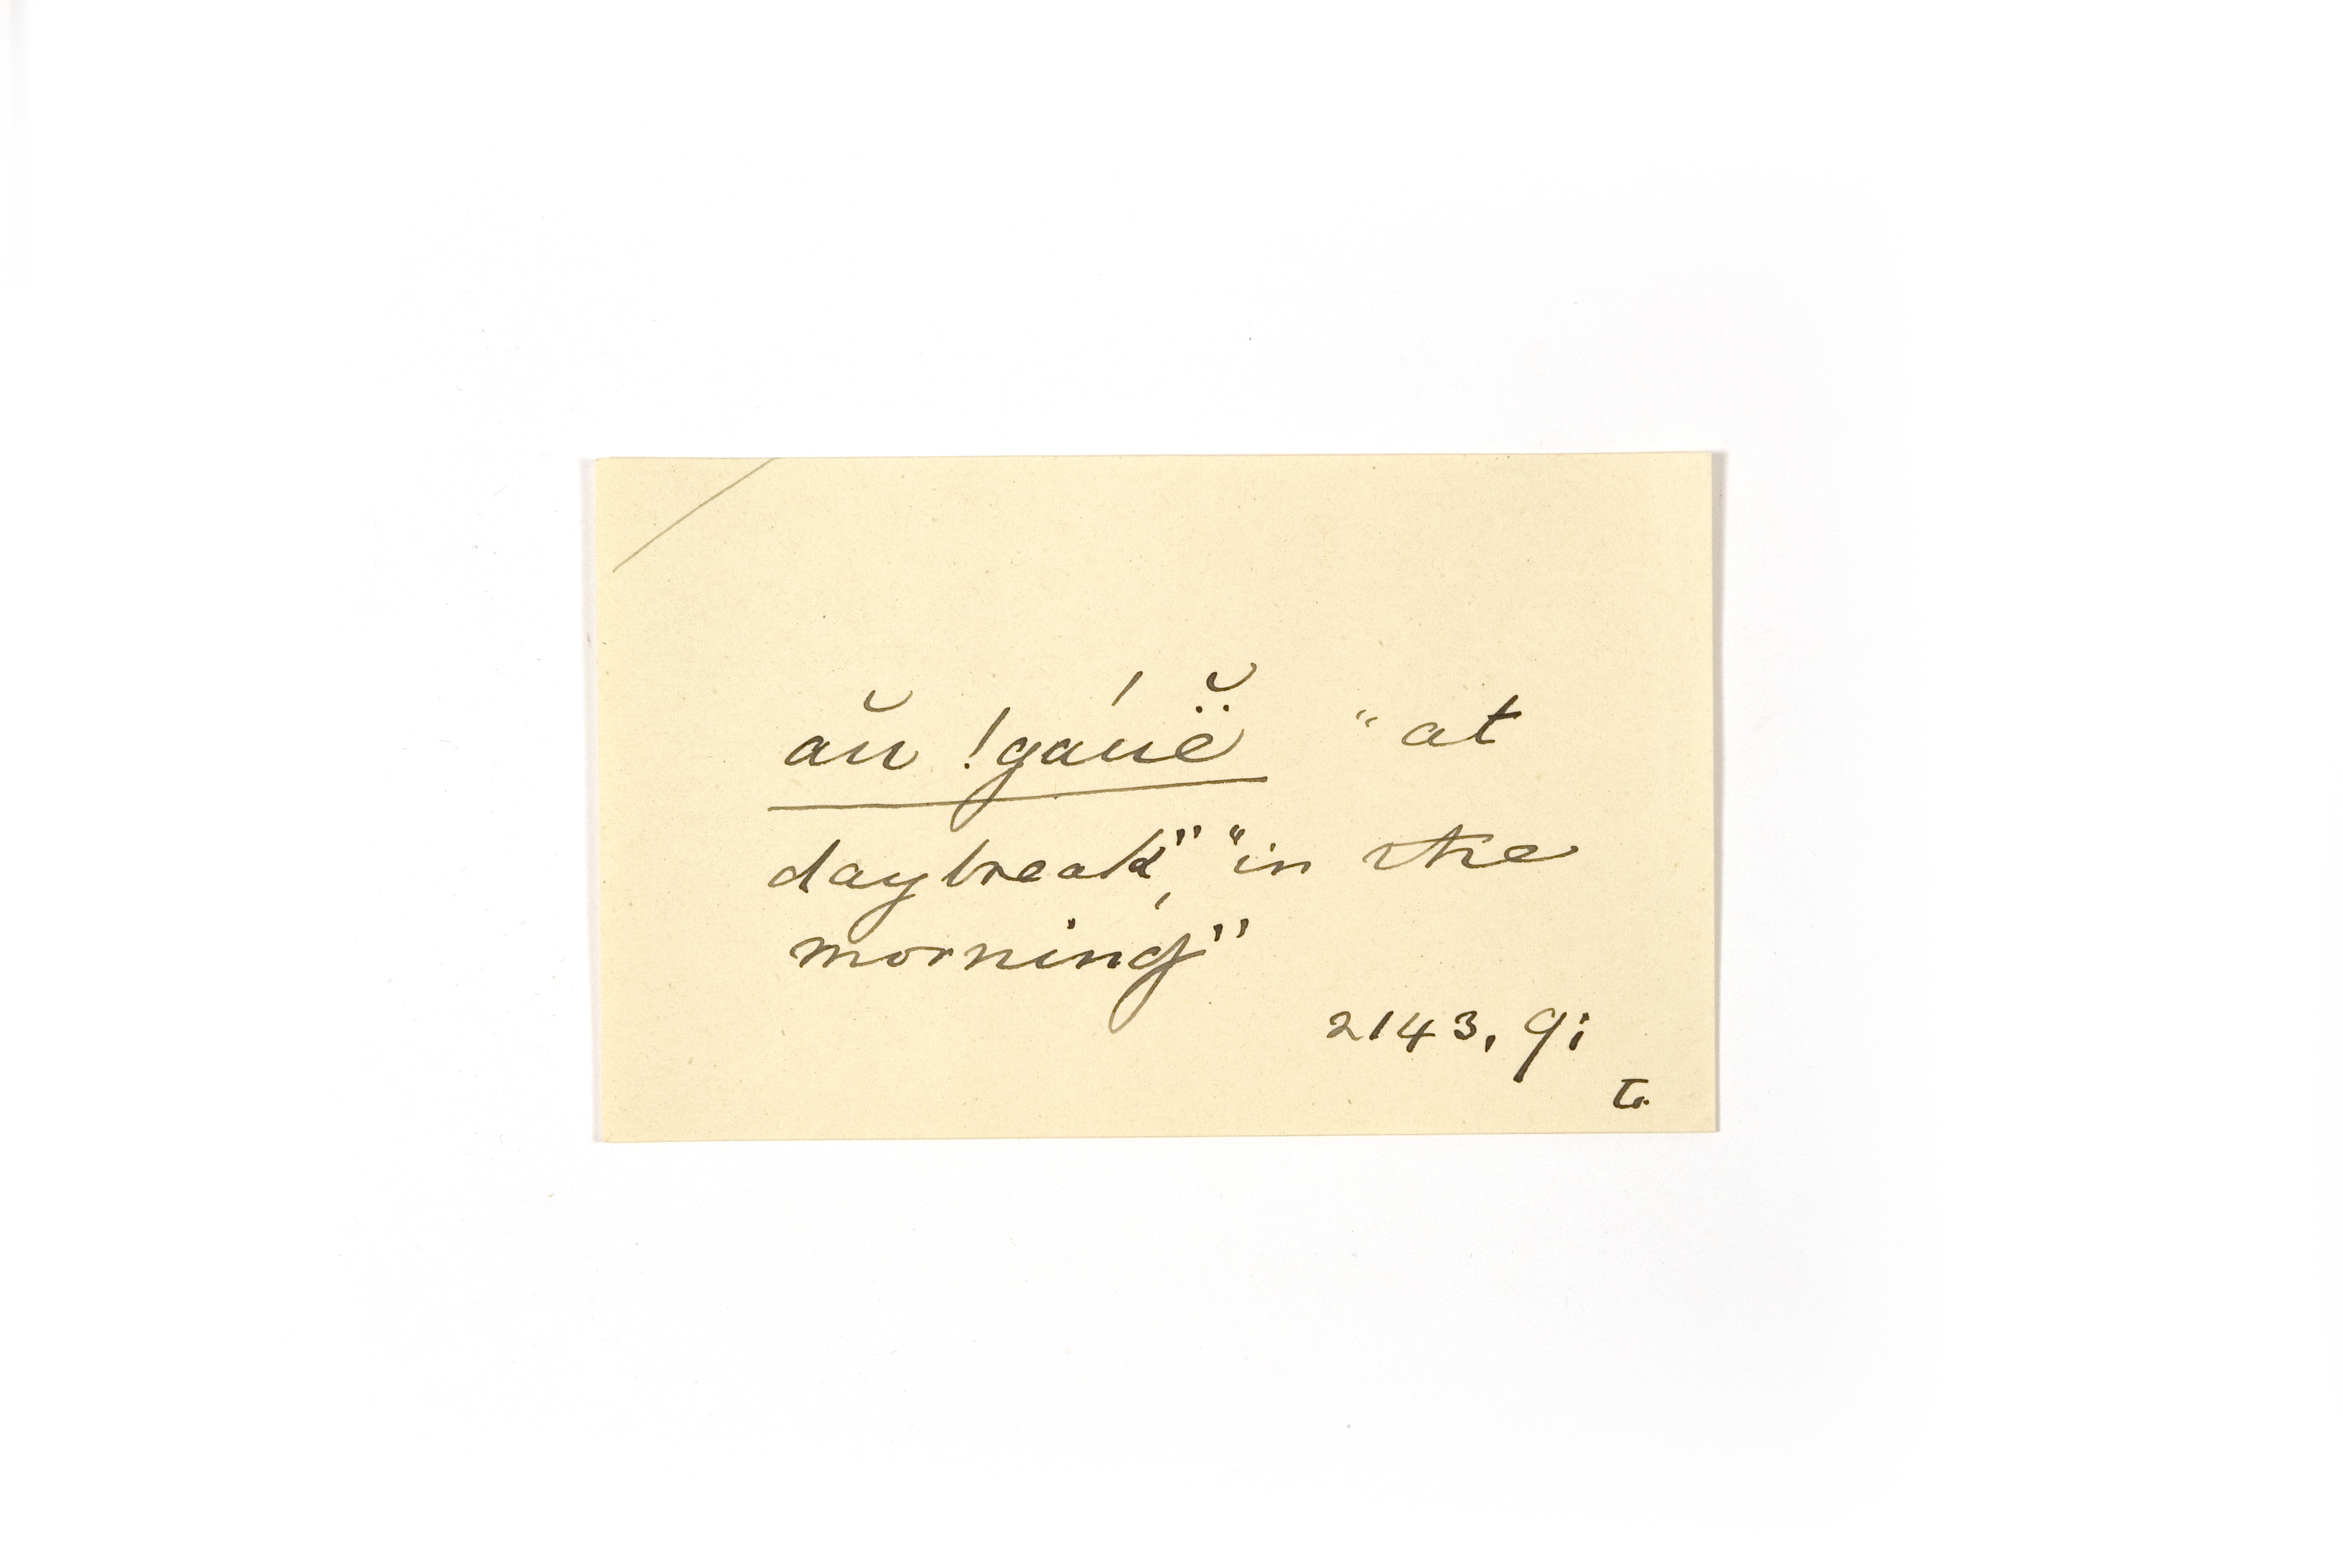 aŭ !gáuë̆ "at
daybreak", "in the
morning"
2143, 9;